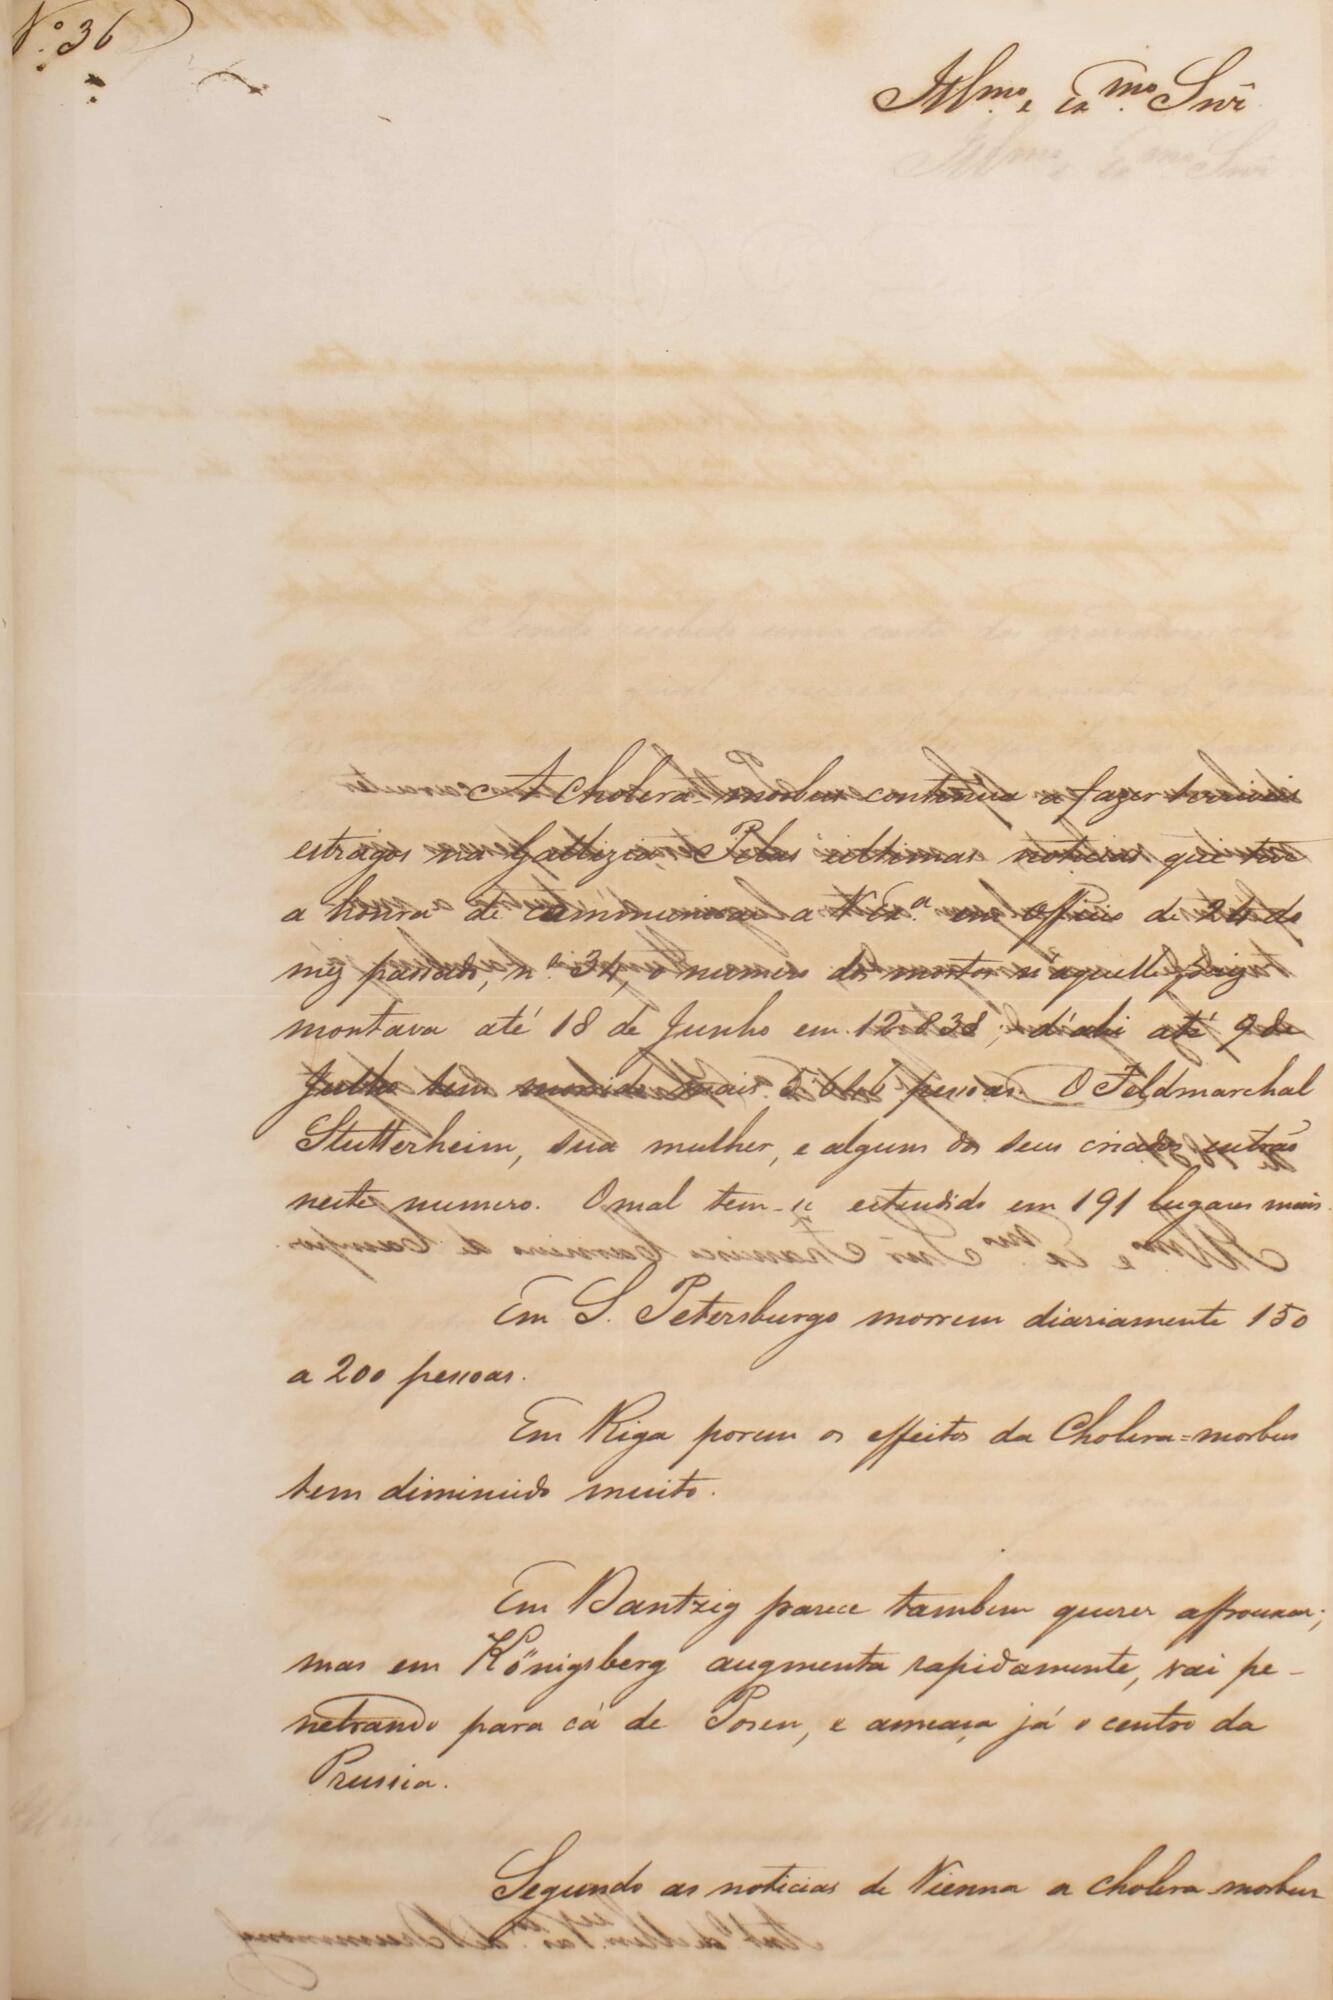 N.º 36
Illmo. e Exmo. Snr
A Cholera-morbus continúa a fazer terriveis
estragos na Gallizia. Pelas ultimas noticias que tive
a honra de communicar a V Exª. em officio de 24 do
mez passado, n.º 34, o numero dos mortos n'aquelle paiz
montava até 18 de Junho em 12.838; d'ahi até 9 de
Julho tem morrido mais pessoas. O Feldmarchal
Stutterheim, sua mulher, e alguns dos seus criados entrão
neste numero. O mal tem-se estendido em 191 lugares mais.
Em S. Petersburgo morrem diariamente 150
a 200 pessoas.
Em Riga porem os effeitos da Cholera=morbus
tem diminuido muito.
Em Dantzig parece tambem querer affrouxar;
mas em Königsberg augmenta rapidamente, vai pe-
netrando para cá de Posen, e ameaça já o centro da
Prussia.
Segundo as noticias de Vienna a cholera morbus